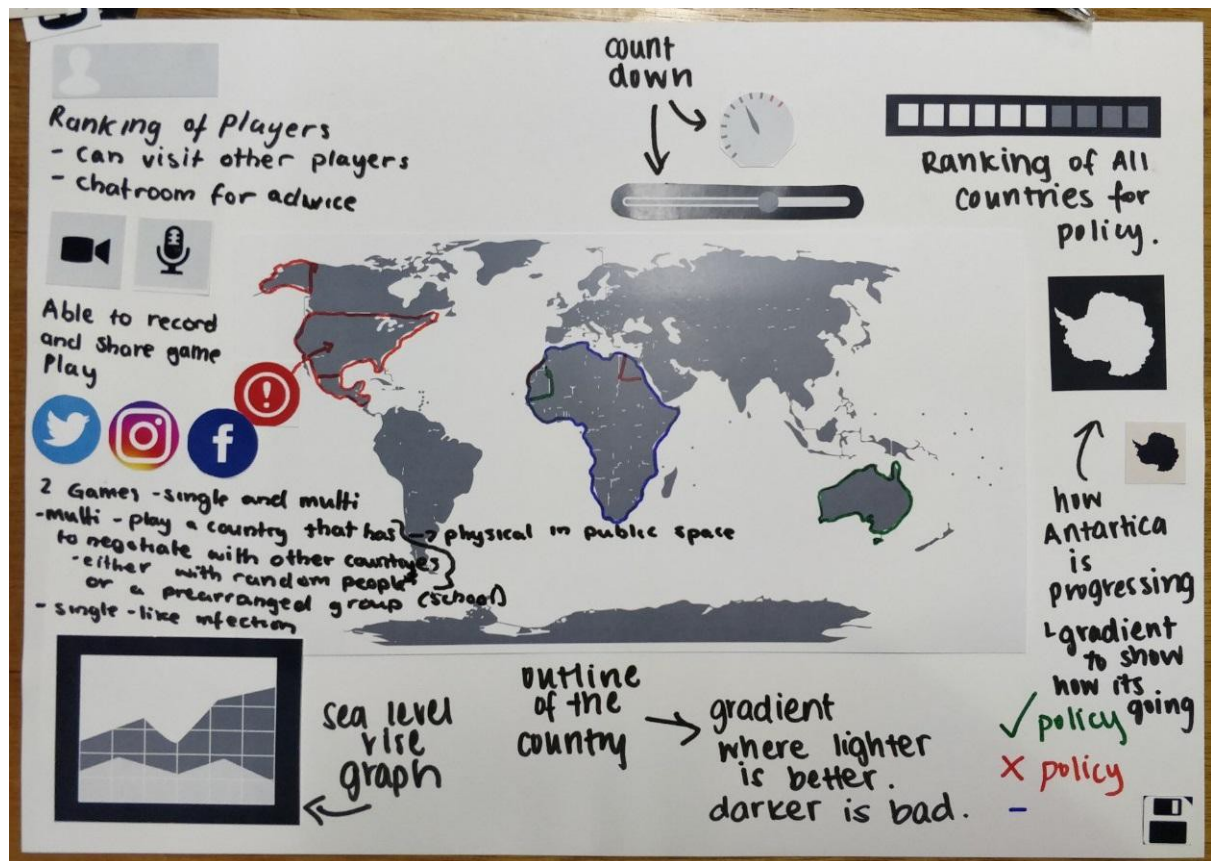 Ranking of Players
- can visit other players
- chatroom for advice
count
down
Ranking of All
countries for
policy.
Able to record
and share game
Play
2 Games - single and multi
- multi - play a country that has → physical in public space
to negotiate with other countries
- either with random people*
or a prearranged group (school)
- single - like infection
how
Antartica
is
progressing
gradient
to show
how its
going
sea level
rise
graph
outline
of the
country
gradient
where lighter
is better.
darker is bad.
✓ policy
x policy
-